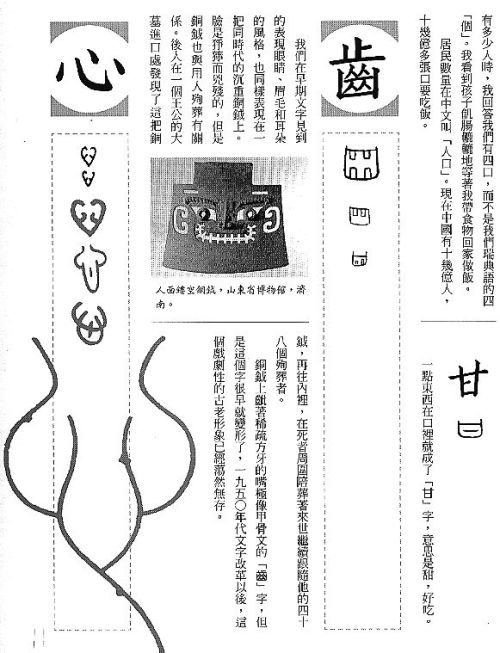 有多少人時，我回答我們有四口，而不是我們瑞典語的四
「個」。我看到孩子飢腸轆轆地等著我帶食物回家做飯。
居民數量在中文叫「人口」。現在中國有十幾億人，
十幾億多張口要吃飯。
甘
一點東西在口裡就成了「甘」字，意思是甜，好吃。
齒
我們在早期文字見到
的表現眼睛、眉毛和耳朵
的風格，也同樣表現在一
把同時代的沉重銅鉞上。
臉是猙獰而兇殘的，但是
銅鉞也與用人殉葬有關
係。後人在一個王公的大
墓進口處發現了這把銅
人面鏤空銅鉞，山東省博物館，濟
南。
鉞，再往內裡，在死者周圍陪葬著來世繼續跟隨他的四十
八個殉葬者。
銅鉞上齜著稀疏方牙的嘴極像甲骨文的「齒」字，但
是這個字很早就變形了，一九五○年代文字改革以後，這
個戲劇性的古老形象已經蕩然無存。
心